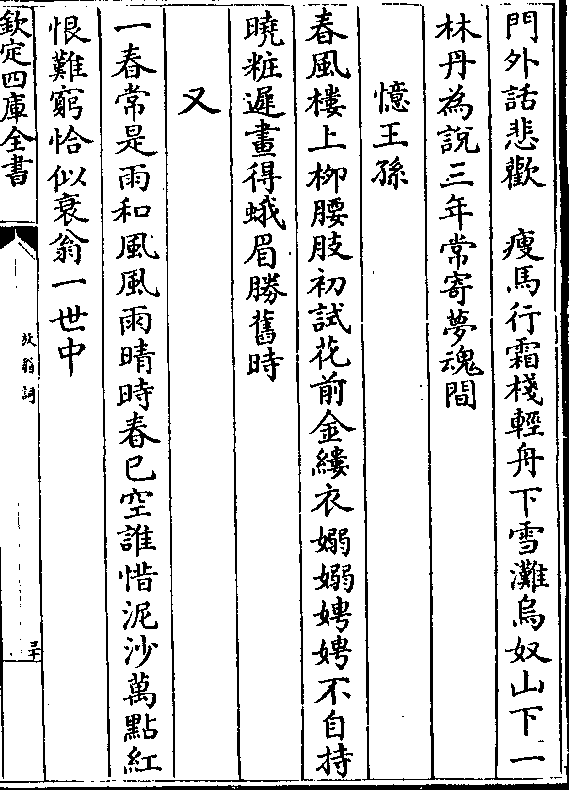 門外話悲歡　瘦馬行霜棧輕舟下雪灘烏奴山下一
林丹為說三年常寄夢魂間
憶王孫
春風樓上栁腰肢初試花前金縷衣嫋嫋娉娉不自持
曉粧遲畫得蛾眉勝舊時
又
一春常是雨和風風雨晴時春已空誰惜泥沙萬點紅
恨難窮恰似衰翁一世中
欽定四庫全書
放翁詞
二十